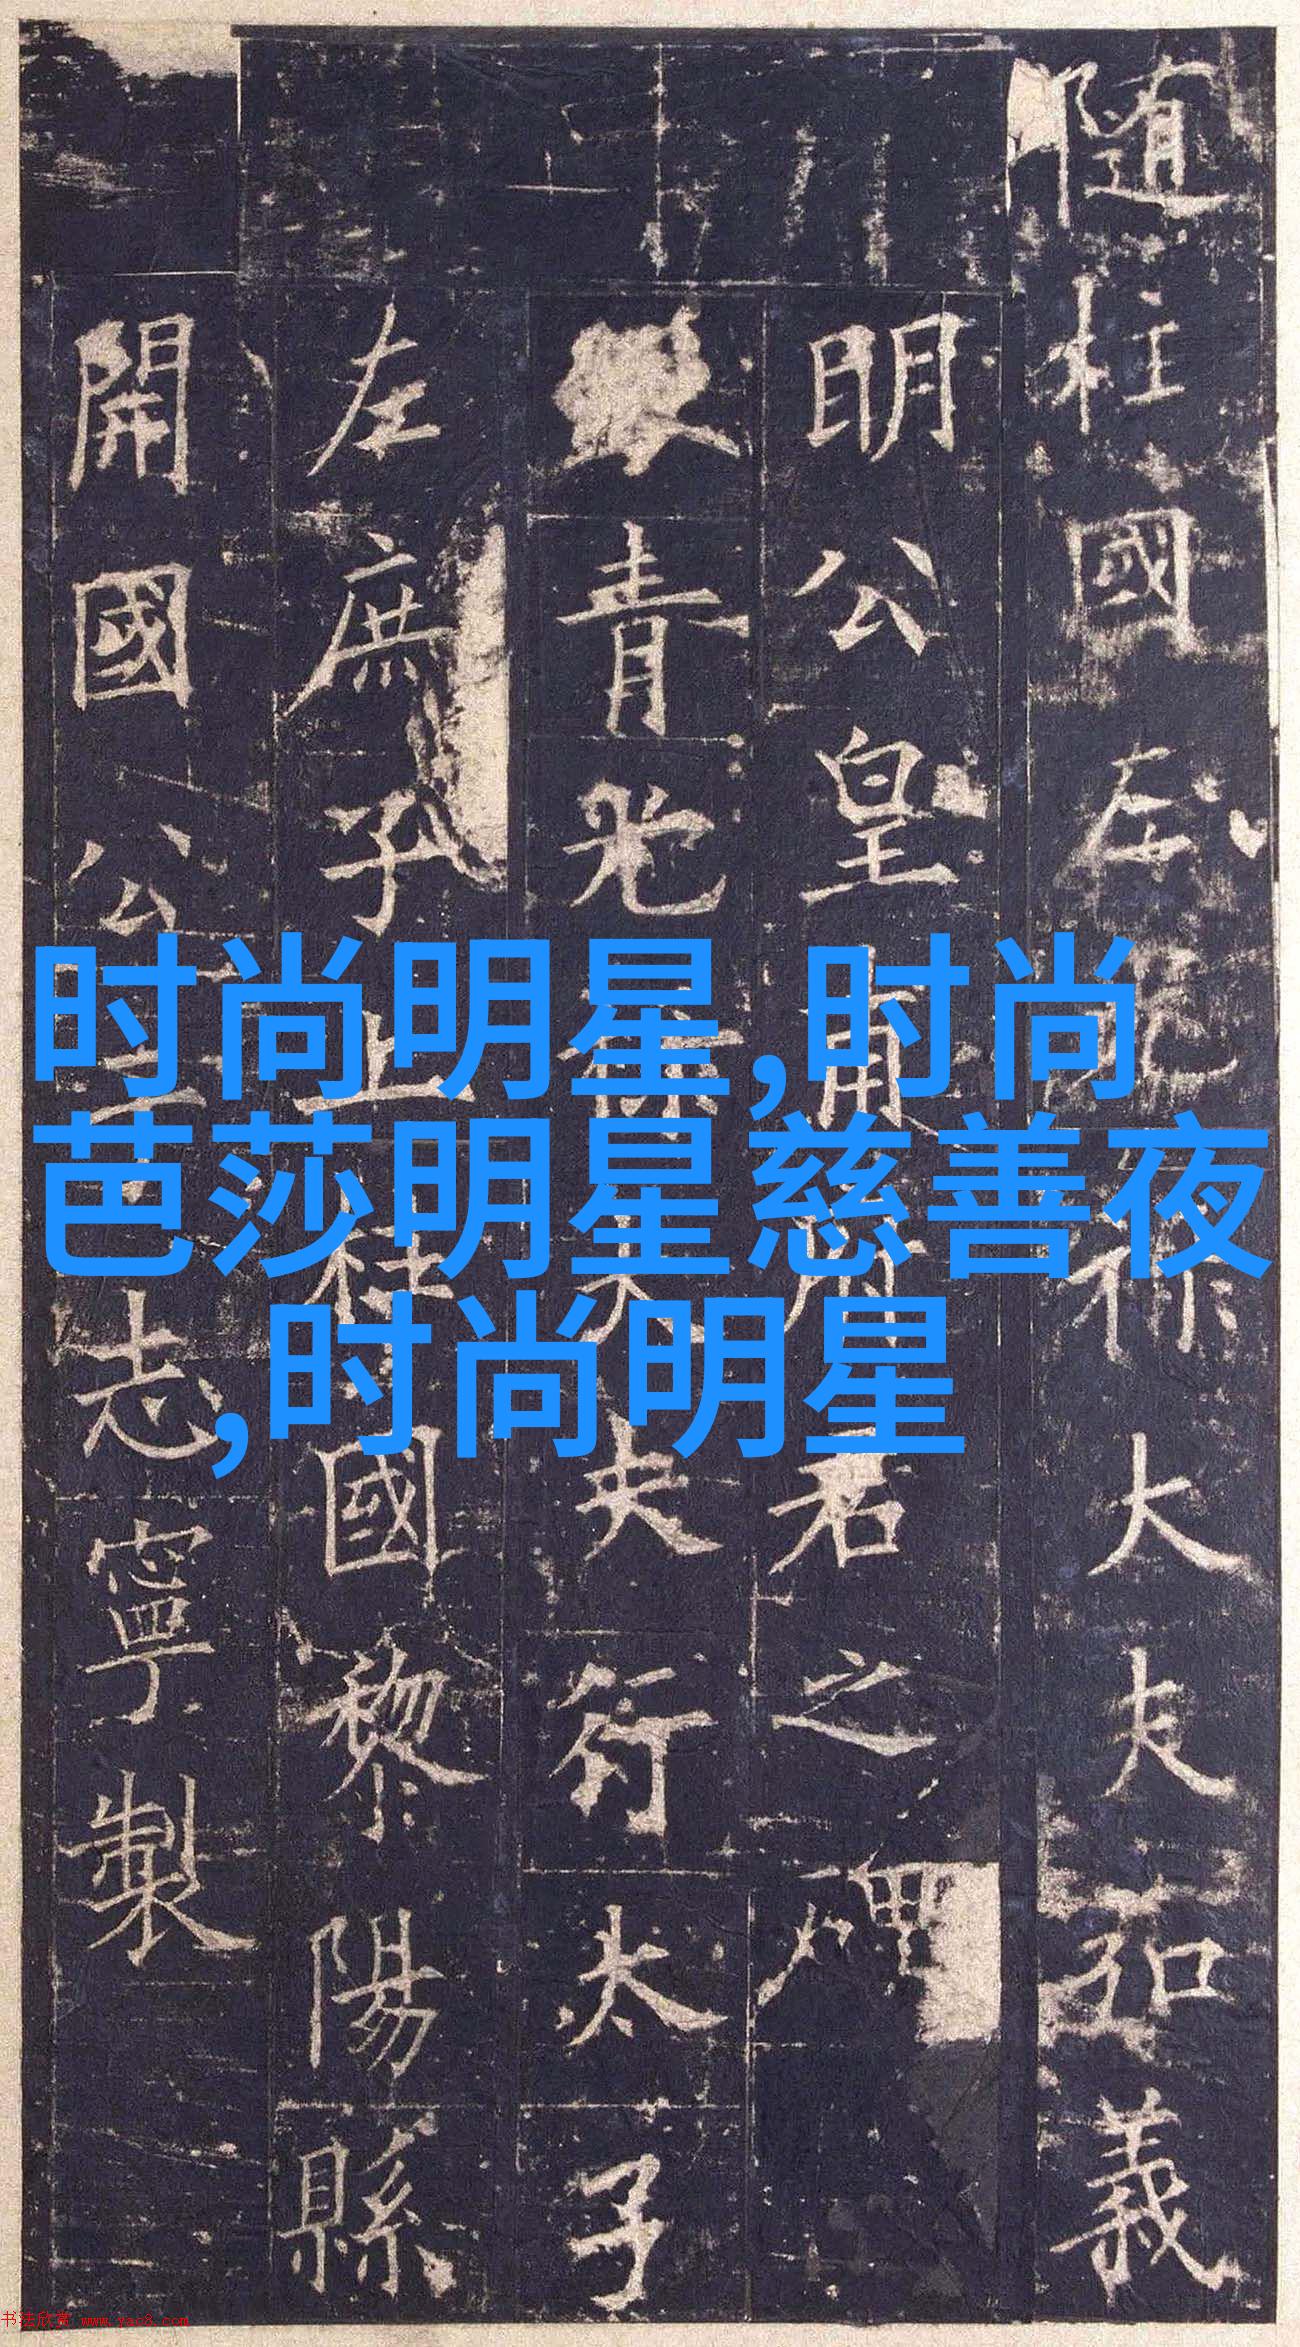 隨柱國左光祿大夫弘義
明公皇甫府君之碑
銀青光祿大夫行太子
左庶子上柱國黎陽縣
開國公于志寧製
时尚明星,时尚
芭莎明星慈善夜
,时尚明星
书法欣赏 www.yac8.com